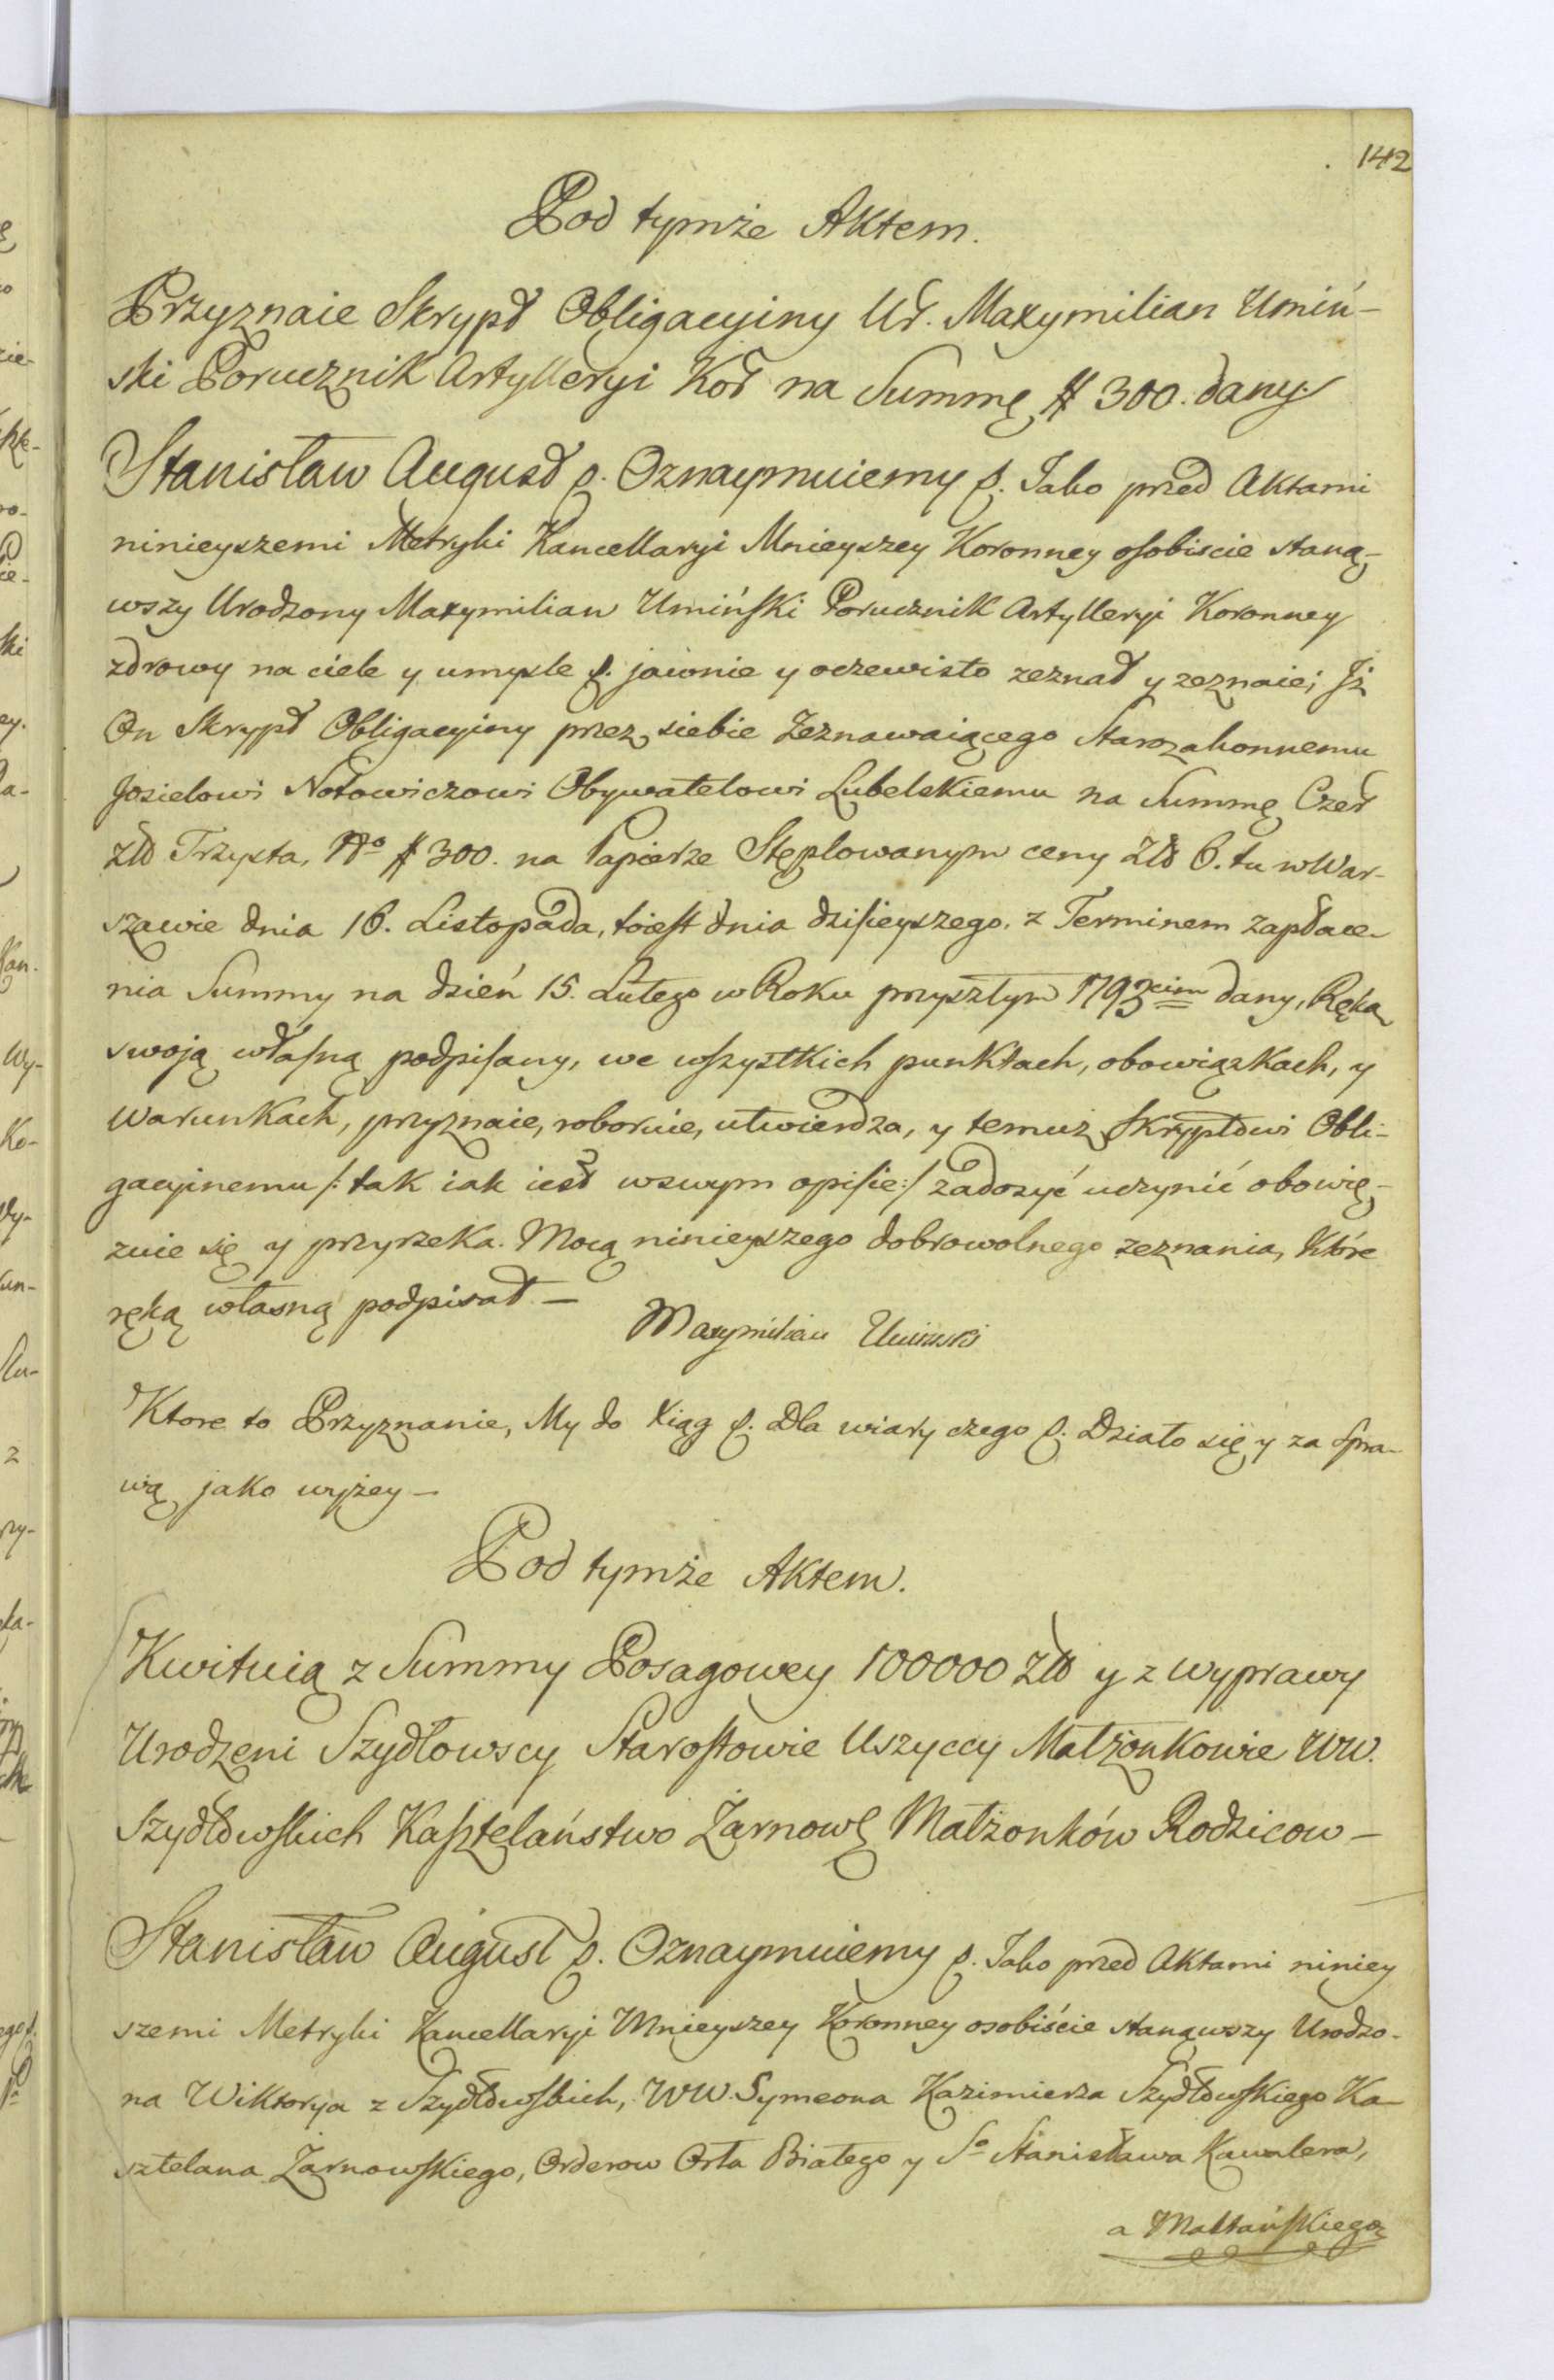 142
Pod tymże Aktem.
Przyznaie Skrypt Obligacyiny Ur. Maxymilian Umiń-
ski Porucznik Artylleryi Kor na Summę # 300. dany
Stanisław August p. Oznaymuiemy p. Jako przed Aktami
ninieyszemi Metryki Kancellaryi Mnieyszey Koronney osobiscie staną-
wszy Urodzony Maxymilian Umiński Porucznik Artylleryi Koronney
zdrowy na ciele y umysle p. jawnie y oczewisto zeznał y zeznaie; Jż
On Skrypt Obligacyiny przez siebie Zeznawaiącego Starozakonnemu
Josielowi Notowiczowi Obywatelowi Lubelskiemu na Summę Czer
Złł Trzysta, No # 300. na Papierze Stęplowanym ceny Złł 6. tu w War-
szawie dnia 16. Listopada, toiest dnia dzisieyszego, z Terminem zapłace-
nia Summy na dzień 15. Lutego w Roku przyszłym 1793cim dany, Ręką
swoją własną podpisany, we wszystkich punktach, obowiązkach, y
Warunkach, przyznaie, roboruie, utwierdza, y temuż Skryptowi Obli-
gacyinemu /: tak iak iest wswym opisie :/ zadosyć uczynić obowię-
zuie się y przyrzeka. Mocą ninieyszego dobrowolnego zeznania, które
ręką własną podpisał —
Maxymilian Umiński
Ktore to Przyznanie, My do Xiąg p. Dla wiary czego p. Działo się y za Spra-
wą jako wyżey —
Pod tymże Aktem.
Kwituią z Summy Posagowey 100000 Złł y z wyprawy
Urodzeni Szydłowscy Starostowie Uszyccy Małżonkowie WW.
Szydłowskich Kasztelaństwo Żarnow Małżonków Rodzicow —
Stanisław August p. Oznaymuiemy p. Jako przed Aktami niniey
szemi Metryki Kancellaryi Mnieyszey Koronney osobiście stanąwszy Urodzo-
na Wiktorya z Szydłowskich, WW. Symeona Kazimierza Szydłowskiego Ka-
sztelana Żarnowskiego, Orderow Orła Białego y So Stanisława Kawalera,
a Maltańskiego